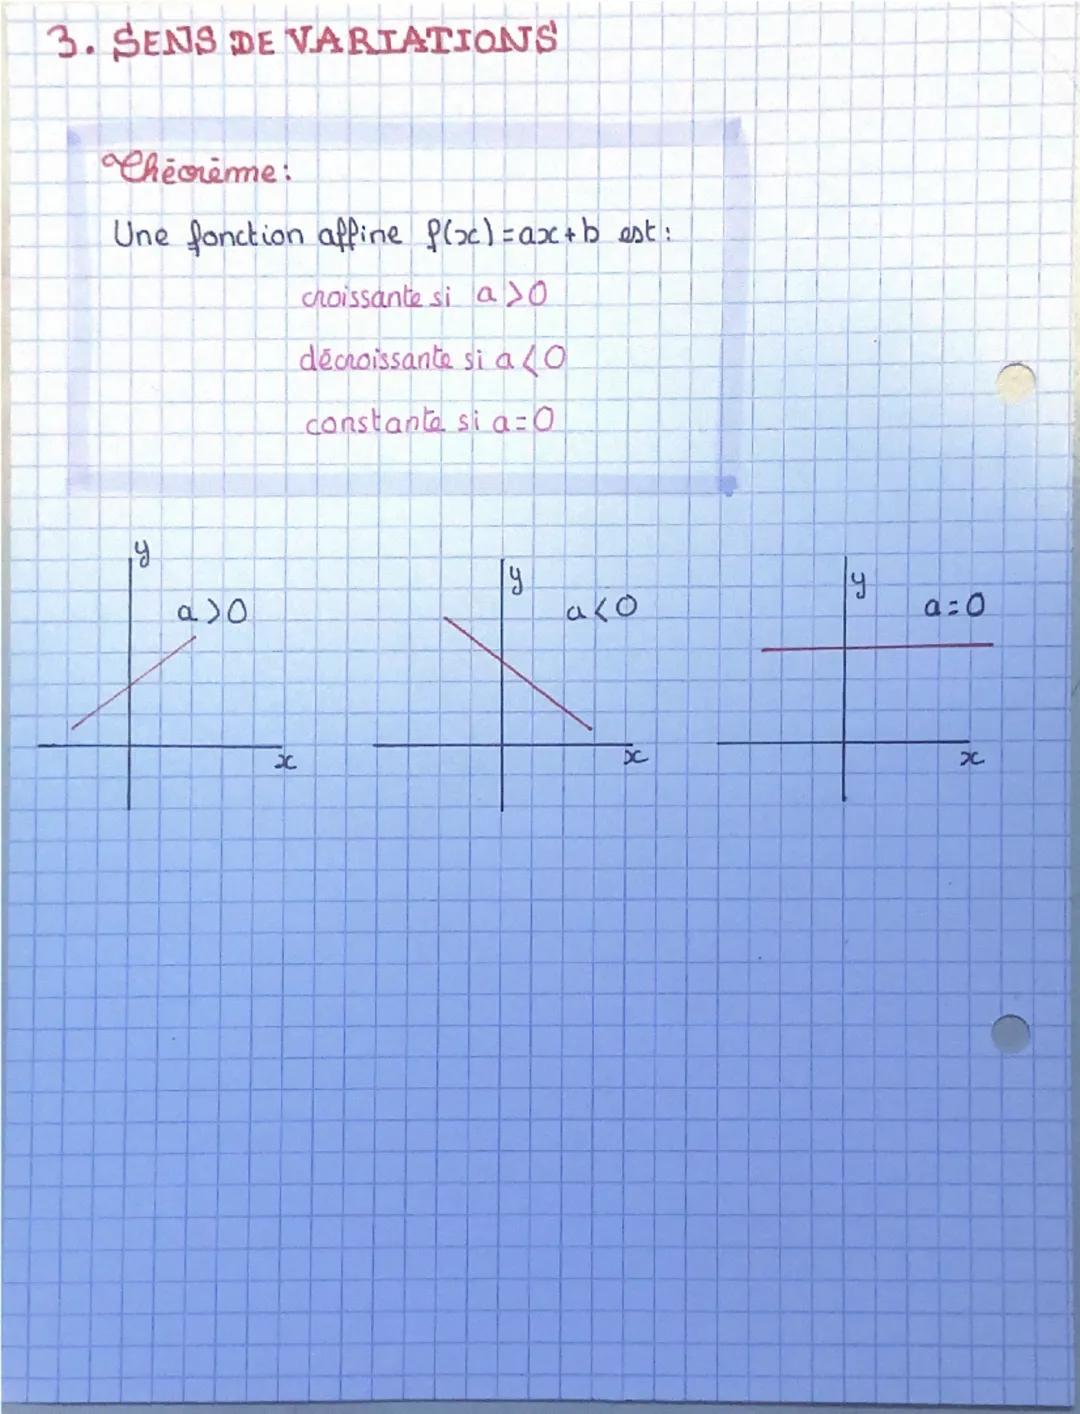 3. SENS DE VARIATIONS
Théorème:
Une fonction affine f(x)=ax+b est:
croissante si a>0
décroissante si a<0
constante si a=0
y
a>0
x
y
a<0
x
y
a=0
x